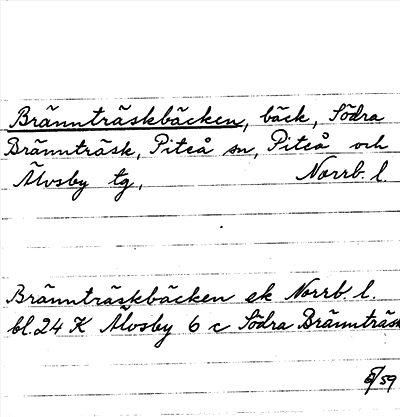 Brännträskbäcken, bäck, Södra
Brännträsk, Piteå sn, Piteå och
Älvsby tg, Norrb. l.
Brännträskbäcken ek Norrb. l.
bl. 24 K Älvsby 6 c Södra Brännträsk
/59